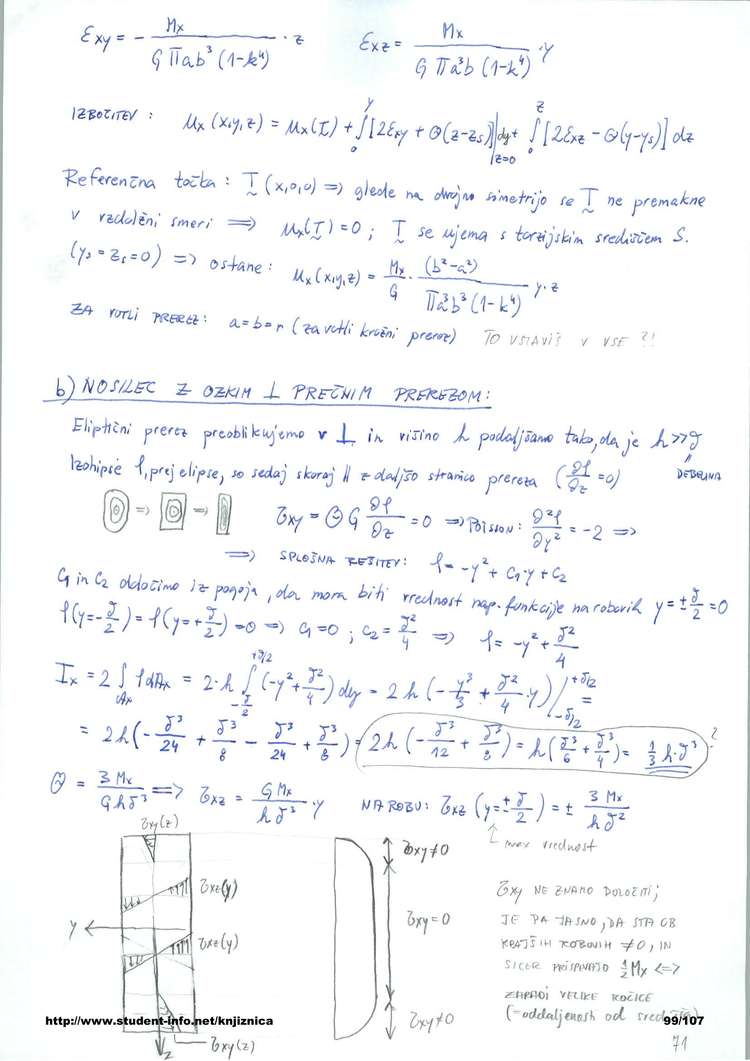 εxy = - Mx / (G Π a b³ (1-k⁴)) · z    εxz = Mx / (G Π a³ b (1-k⁴)) · y
IZBOČITEV : ux (x,y,z) = ux(T) + ∫₀^y [2εxy + Θ(z-zs)]|z=0 dy + ∫₀^z [2εxz - Θ(y-ys)] dz
Referenčna točka : T (x,0,0) => glede na dvojno simetrijo se T ne premakne
v vzdolžni smeri => ux(T) = 0 ; T se ujema s torzijskim središčem S.
(ys = zs = 0) => ostane : ux(x,y,z) = Mx/G · (b²-a²) / (Π a³ b³ (1-k⁴)) y·z
ZA VOTLI PREREZ : a = b = r (za votli krožni prerez) TO VSTAVIŠ V VSE ?!
b) NOSILEC Z OZKIM ⊥ PREČNIM PREREZOM :
Eliptični prerez preoblikujemo v ⊥ in višino h podaljšamo tako, da je h >> δ
" DEBELINA
Izohipse f, prej elipse, so sedaj skoraj || z daljšo stranico prereza (∂f/∂z = 0)
=> =>
τxy = Θ G ∂f/∂z = 0 => POISSON : ∂²f/∂y² = -2 =>
=> SPLOŠNA REŠITEV : f = -y² + C₁·y + C₂
C₁ in C₂ določimo iz pogoja, da mora biti vrednost nap. funkcije na robovih y = ± δ/2 = 0
f(y=-δ/2) = f(y=+δ/2) = 0 => C₁ = 0 ; C₂ = δ²/4 => f = -y² + δ²/4
Ix = 2 ∫Ax f dAx = 2·h ∫-δ/2^+δ/2 (-y² + δ²/4) dy = 2h (-y³/3 + δ²/4 · y) |-δ/2^+δ/2 =
= 2h (-δ³/24 + δ³/8 - δ³/24 + δ³/8) = 2h (-δ³/12 + δ³/8) = h (δ³/6 + δ³/4) = 1/3 h·δ³ ?
Θ = 3Mx / (G h δ³) => τxz = 6Mx / (h δ³) · y    NA ROBU : τxz (y = ± δ/2) = ± 3Mx / (h δ²)
max vrednost
τxy(z)
τxz(y)
y
τxz(y)
z
τxy(z)
τxy≠0
τxy=0
τxy≠0
τxy NE ZNAMO DOLOČITI ;
JE PA JASNO, DA STA OB
KRAJŠIH ROBOVIH ≠ 0, IN
SICER PRISPEVATA 1/2 Mx <=>
ZARADI VELIKE ROČICE
(= oddaljenost od središča)
http://www.student-info.net/knjiznica
99/107
71